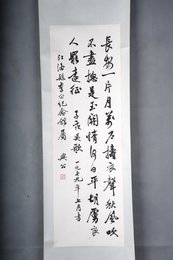 長安一片月萬户擣衣聲秋風吹
不盡總是玉關情何日平胡虜良
人罷遠征
子夜吴歌 一九七九年七月書
江海䢖李白纪念館屬
```